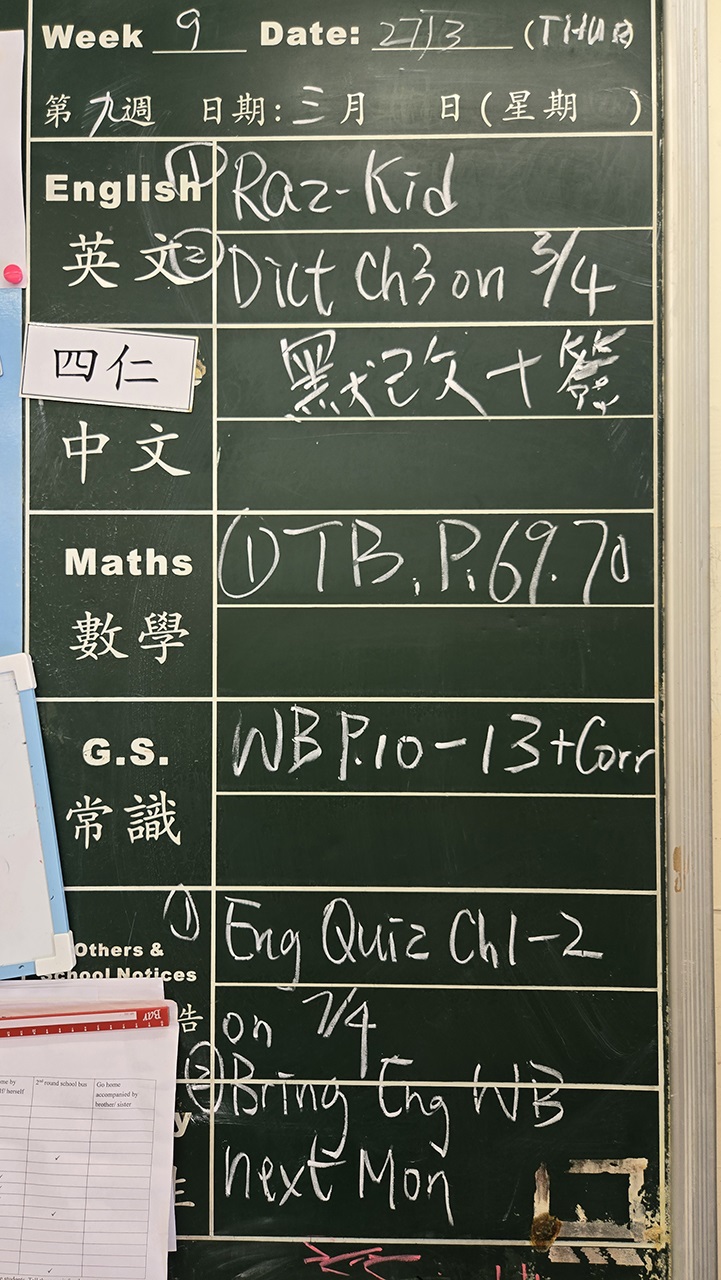 Week 9 Date: 27/3 (THUR)
第九週 日期:三月 日(星期 )
English ① Raz-Kid
英文 ② Dict Ch3 on 3/4
四仁
默改文+簽
中文
Maths ① TB. P.69.70
數學
G.S. WB P.10-13+Corr
常識
① Eng Quiz Ch1-2
Others &
School Notices
告 on 7/4
② Bring Eng WB
y
next Mon
生
2nd round school bus
Go home
accompanied by
brother/ sister